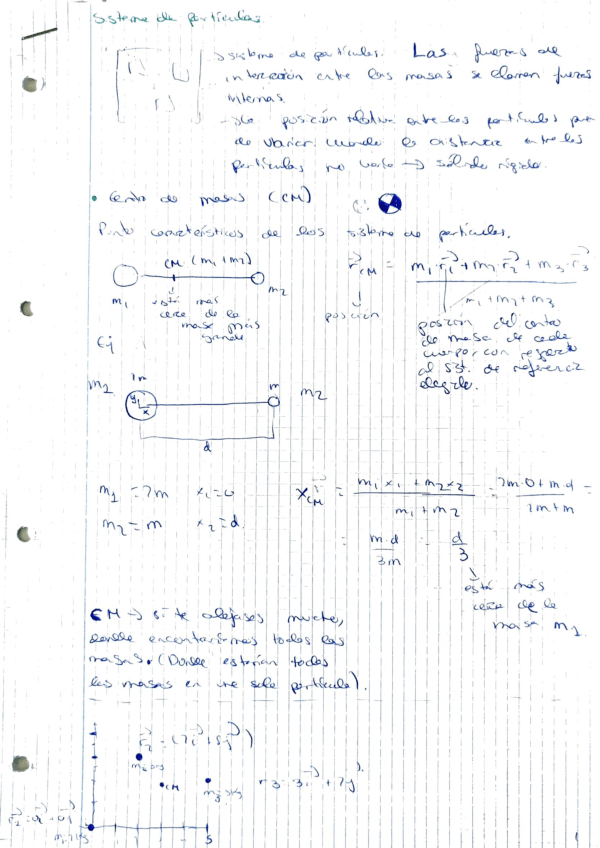 Sistema de partículas
→ sistema de partículas. Las fuerzas de
interacción entre las masas se llaman fuerzas
internas.
→ La posición relativa entre las partículas pue
de variar. Cuando la distancia entre las
partículas no varía → sólido rígido.
• Centro de masas (CM)
Punto característicos de los sistema de partículas.
CM (m1+m2)
m1
m2
está más
cerca de la
masa más
grande
r⃗CM = m1·r⃗1 + m2·r⃗2 + m3·r⃗3
m1+m2+m3
posición
posición del centro
de masa de cada
cuerpo con respecto
al sist. de referencia
elegido.
Ej
2m
m
m1
m2
y
x
d
m1 = 2m x1=0
m2 = m x2=d
xCM = m1x1 + m2x2 = 2m·0+m·d =
m1+m2 2m+m
= m·d = d
3m 3
está más
cerca de la
masa m1.
CM → si te alejases mucho,
donde encontraríamos todas las
masas. (Donde estarían todas
las masas en una sola partícula).
r⃗2 = (2i⃗ + 5j⃗)
CM
r3 = 3i⃗ + 2j⃗
r⃗1 = 0i⃗ + 0j⃗
5